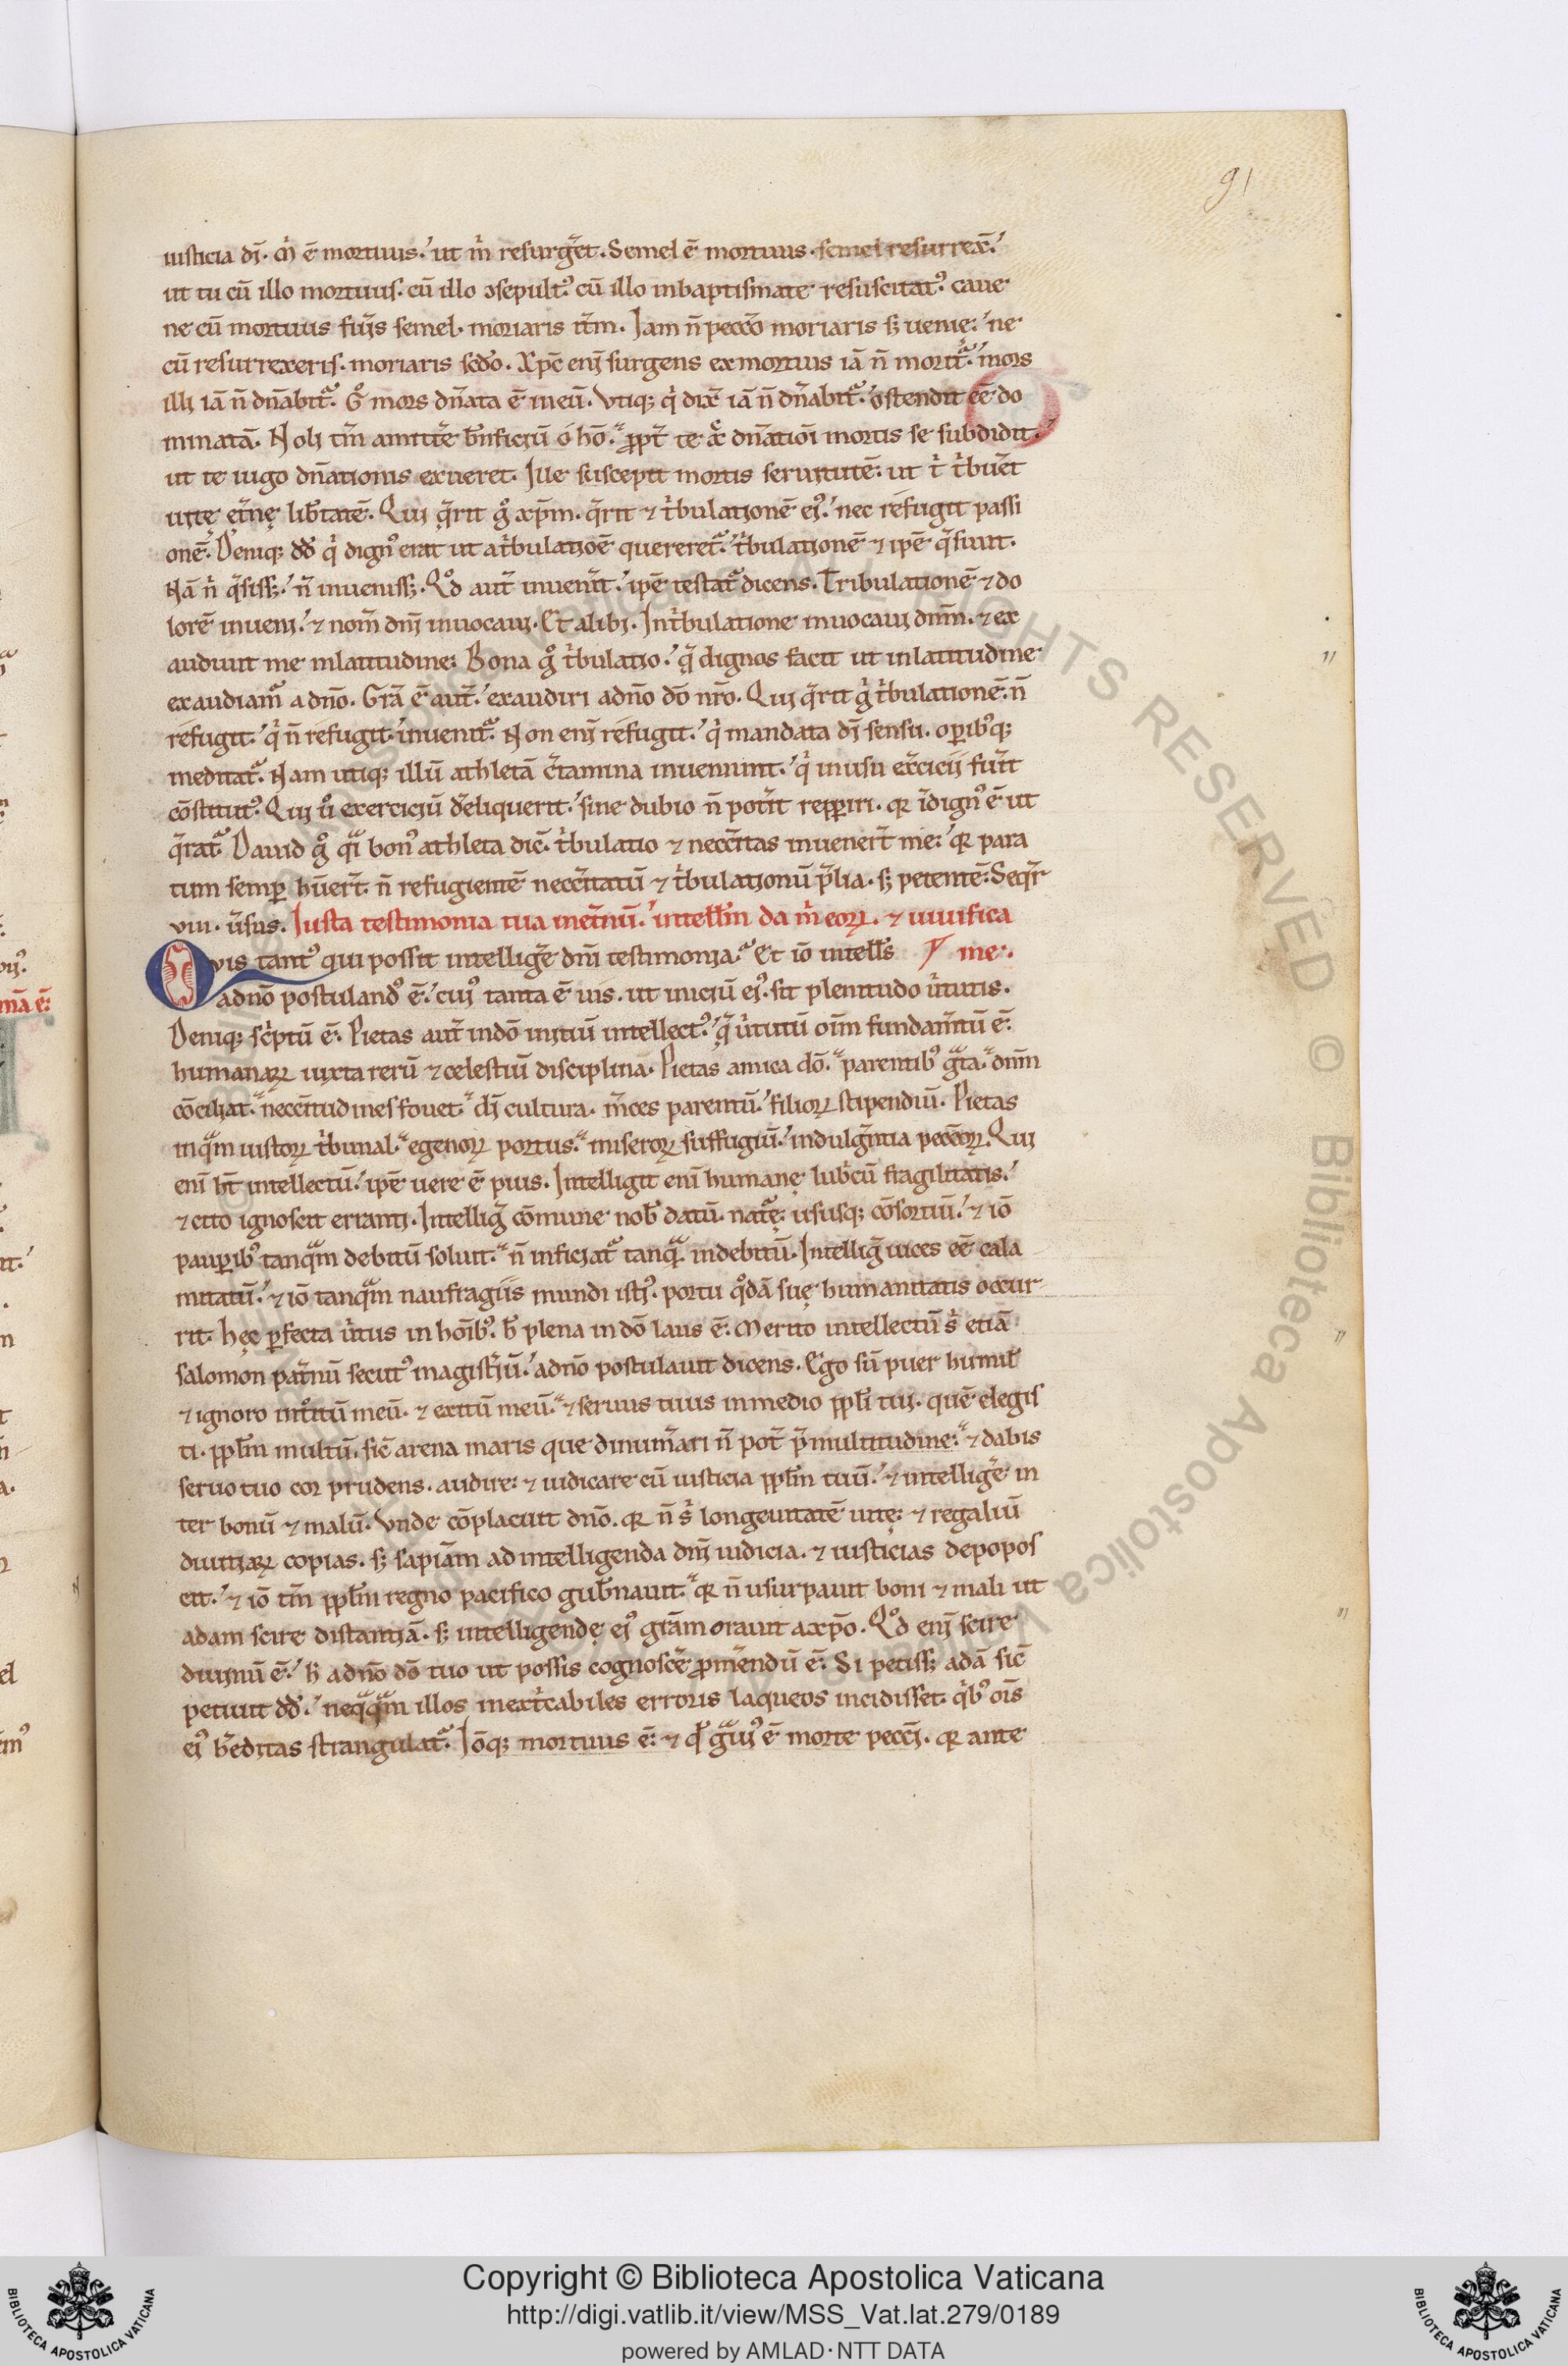 91
iusticia dī. Qͥ ē mortuus.ʼ ut mͥ resurgˀet. Semel ē mortuus. semel resurrex̄.ʼ
ut tu cū illo mortuus. cū illo ↄsepultꝰ cū illo inbaptismate resuscitatꝰ caue
ne cū mortuus fuˀis semel. moriaris itˀm. Iam n̄ peccͦo moriaris sꝫ uenie:ʼ ne
cū resurrexeris. moriaris secͩo. Xp̄c eni surgens exmortuis iā n̄ moritᷣ.ʼ mors
illi iā n̄ dn̄abitᷣ. Gͦ mors dn̄ata ē ineū. Vtiqꝫ qͥ dix̄ iā n̄ dn̄abitᷣ.ʼ ostendit eē do
minatā. Noli tm̄ amittˀe bn̄ficiū ó hō. ꝓptˀ te xͨ dn̄atiōi mortis se subdidit.ʼ
ut te iugo dn̄ationis exueret. Ille suscepit mortis seruitutē: ut tͥ tͥbuˀet
uitę etˀnę libˀtatē. Qui qͣrit gͦ xp̄m. qͣrit ⁊ tͥbulationē eiꝰ.ʼ nec réfugit passi
onē. Deniqꝫ dd̄ qͥ dignꝰ erat ut atͥbulatiōe quereretᷣ.ʼ tͥbulationē ⁊ ip̄e qͣsiuit.
Nā nͥ qͣsissꝫ.ʼ n̄ inuenissꝫ. Qͦd autˀ inuenˀit.ʼ ip̄e testatᷣ dicens. Tribulationē ⁊ do
lorē inueni.ʼ ⁊ nom̄ dn̄i inuocaui. Et alibi. Intͥbulatione inuocaui dn̄m. ⁊ ex
audiuit me inlatitudine: Bona gͦ tͥbulatio.ʼ qͣ dignos facit ut inlatitudine
exaudiamᷣ adn̄o. Gr̄a ē autˀ.ʼ exaudiri adn̄o dō nr̄o. Qui qͣrit gͦ tͥbulationē: n̄
réfugit.ʼ qͥ n̄ réfugit.ʼ inuenitᷣ. Non eni réfugit.ʼ qͥ mandata dī sensu. oꝑibꝰqꝫ
meditatᷣ. Nam utiqꝫ illū athletā cˀtamina inueniunt.ʼ qͥ inusu exˀcicii fuˀit
cōstitutꝰ. Qui ůo exerciciū dˀeliquerit.ʼ sine dubio n̄ potˀit repꝑiri. qꝛ īdignꝰ ē ut
qͣratᷣ. Dauid gͦ qͣi bonꝰ athleta dic̄. tͥbulatio ⁊ neccˀitas inuenert̄ me:ʼ qꝛ para
tum semꝑ hūert̄. n̄ refugientē neccˀitatū ⁊ tͥbulationū pˀlia. sꝫ petentē: Seqˀr
VIII. uˀsus. Iusta testimonia tua inetˀnū.ʼ intellˀm da mͥ eoꝝ. ⁊ uiuifica
Qvis tantꝰ qui possit intelligˀe dn̄i testimonia. Et iō intellˀs me:.
adn̄o postulandꝰ ē.ʼ cuiꝰ tanta ē uis. ut iniciū eiꝰ sit plenitudo uˀtutis.
Deniqꝫ scˀptū ē. Pietas autˀ indō initiū intellectꝰ.ʼ qͣ uˀtutū oīm fundamˀtū ē:
humanaꝝ iuxta rerū ⁊ celestiū disciplinā. Pietas amica dō. parentibꝰ gͣta. dn̄m
cōciliat. neccˀitudines fouet. dī cultura. mˀces parentū.ʼ filioꝝ stipendiū. Pietas
inqͣm iustoꝝ tͥbunal. egenoꝝ portus. miseroꝝ suffugiū.ʼ indulgˀntia peccōꝝ. Qui
enī ht̄ intellectū.ʼ ip̄e uere ē pius. Intelligit enī humanę lubͥcū fragilitatis.ʼ
⁊ cito ignoscit erranti. Intelligˀ cōmune nob̄ datū. natᷣę: ususqꝫ cōsortiū.ʼ ⁊ iō
pauꝑibꝰ tanqͣm debitū soluit. n̄ inficiatᷣ tanqͣ indebitū. Intelligˀ uices eē cala
mitatū.ʼ ⁊ iō tanqͣm naufragiis mundi istiꝰ. portu qͦdā suę humanitatis occur
rit. hęc ꝑfecta uˀtus in hōibꝰ. h̄ plena in dō laus ē. Merito intellectū sͥ etiā
salomon patˀnū secutꝰ magistˀiū.ʼ adn̄o postulauit dicens. Ego sū puer humil̄
⁊ ignoro intͦitū meū. ⁊ exitū meū. ⁊ seruus tuus inmedio ppl̄i tui. quē elegis
ti. ppl̄m multū. sic̄ arena maris que dinumˀari n̄ potˀ pˀmultitudine. ⁊ dabis
seruo tuo cor prudens. audire: ⁊ iudicare cū iusticia ppl̄m tuū.ʼ ⁊ intelligˀe in
ter bonū ⁊ malū. Vnde cōplacuit dn̄o. qꝛ n̄ sͥ longeuitatē uitę: ⁊ regaliū
diuitiaꝝ copias. sꝫ sapiˀam ad intelligenda dn̄i iudicia. ⁊ iusticias depopos
cit.ʼ ⁊ iō tm̄ ppl̄m regno pacifico gubˀnauit. qꝛ n̄ usurpauit boni ⁊ mali ut
adam scire distantiā. sꝫ intelligendę eiꝰ grām orauit axp̄o. Qͦd eni scire
diuinū ē.ʼ h̄ adn̄o dō tuo ut possis cognoscˀe ꝓmˀendū ē. Si petissꝫ adā sic̄
petiuit dd̄.ʼ neqͣqͣm illos inextͥcabiles erroris laqueos incidisset. qͥbꝰ oīs
eiꝰ hˀeditas strangulatᷣ. Iōqꝫ mortuus ē: ⁊ qͩ gͣuiꝰ ē morte pecc̄i. qꝛ ante
Copyright © Biblioteca Apostolica Vaticana
http://digi.vatlib.it/view/MSS_Vat.lat.279/0189
powered by AMLAD·NTT DATA